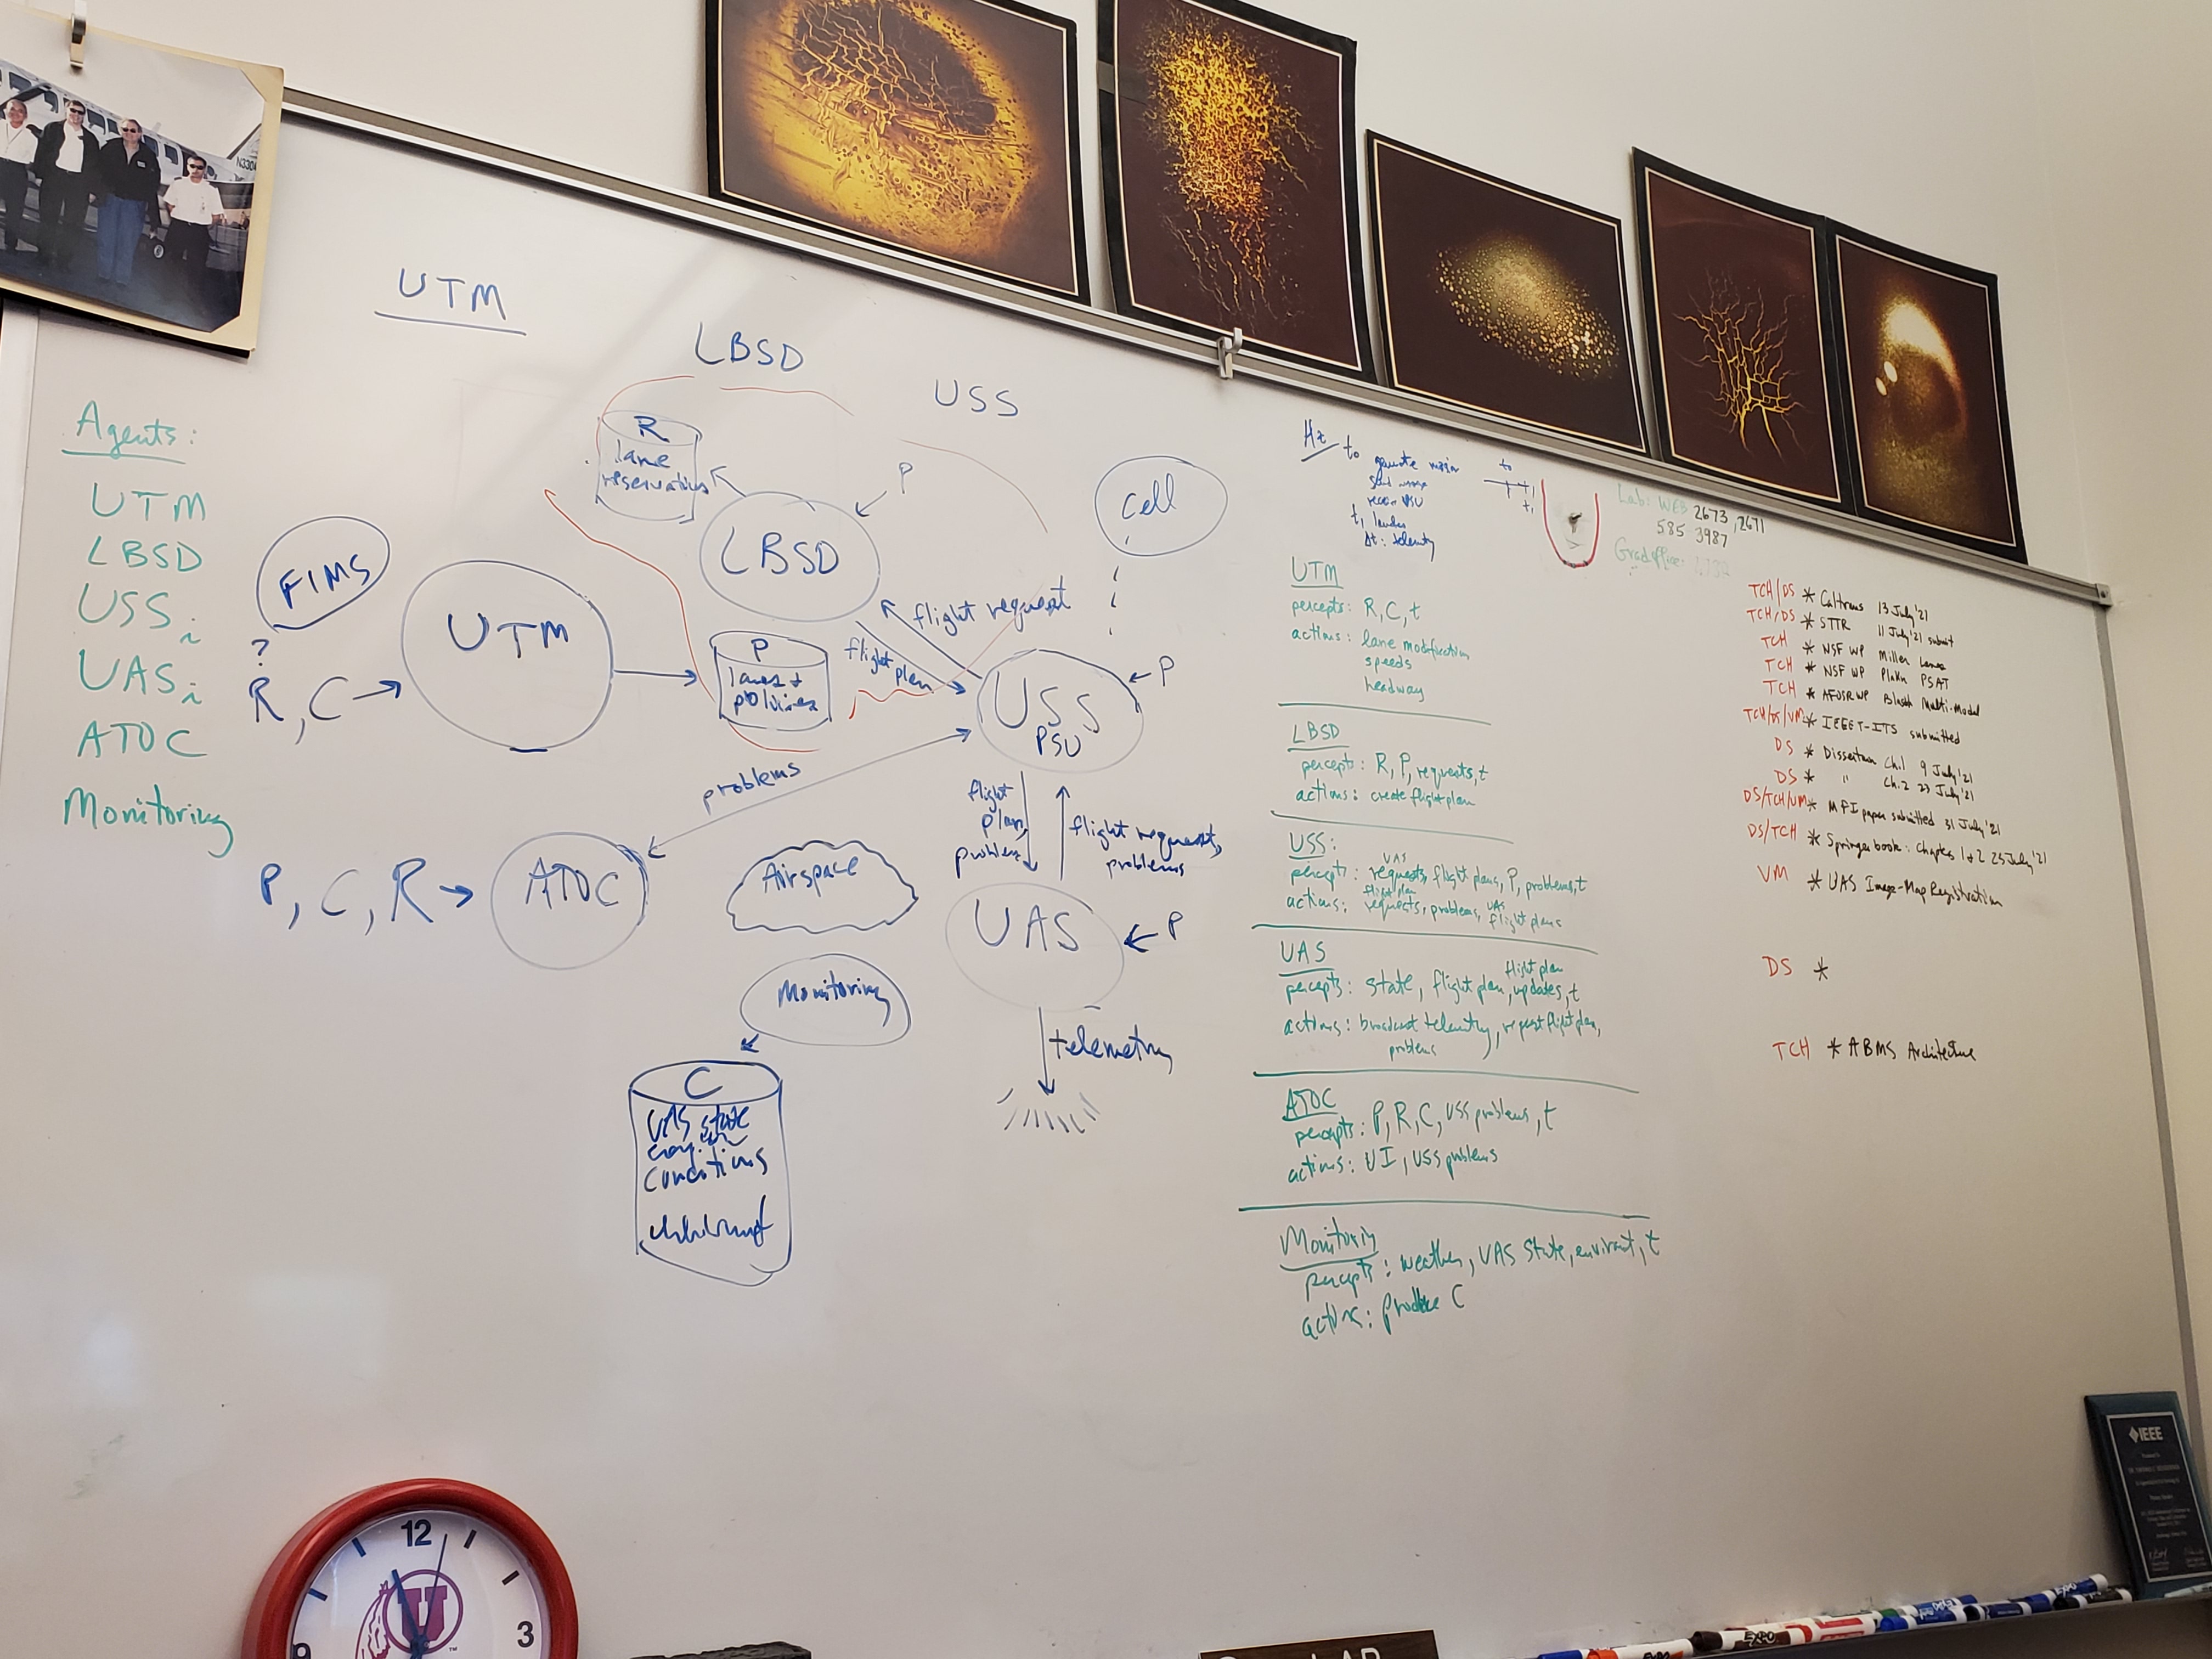 UTM
LBSD
USS
Agents:
UTM
LBSD
USS i
UAS i
ATOC
Monitoring
FIMS
?
R, C →
UTM
R
lane
reservations
P
LBSD
cell
P
lanes +
policies
flight request
flight plan
USS
PSU
P
problems
flight
plan,
problems
flight requests,
problems
P, C, R →
ATOC
Airspace
UAS
P
Monitoring
telemetry
C
UAS state
conditions
Hz
t0
t1
Δt: telemetry
t0
t1
Lab: WEB 2673, 2671
585 3987
UTM
percepts: R, C, t
actions: lane modification
speeds
headway
LBSD
percepts: R, P, requests, t
actions: create flight plan
USS:
UAS
percepts: requests, flight plans, P, problems, t
flight plan
UAS
actions: requests, problems, flight plans
UAS
flight plan
percepts: state, flight plan, updates, t
actions: broadcast telemetry, request flight plan,
problems
ATOC
percepts: P, R, C, USS problems, t
actions: UI, USS problems
Monitoring
percepts: weather, UAS state, t
actions: produce C
TCH/DS * Caltrans 13 July '21
TCH/DS * STTR 11 July '21 submit
TCH * NSF WP Miller Lanes
TCH * NSF WP PSAT
TCH * AFOSR WP Blasch Multi-Modal
TCH/DS/VM * IEEE T-ITS submitted
DS * Dissertation Ch.1 9 July '21
DS * " Ch.2 23 July '21
DS/TCH/VM * MFI paper submitted 31 July '21
DS/TCH * Springer book: Chapters 1 & 2 25 July '21
VM * UAS Image-Map Registration
DS *
TCH * ABMS Architecture
N330
12
3
9
U
IEEE
EXPO